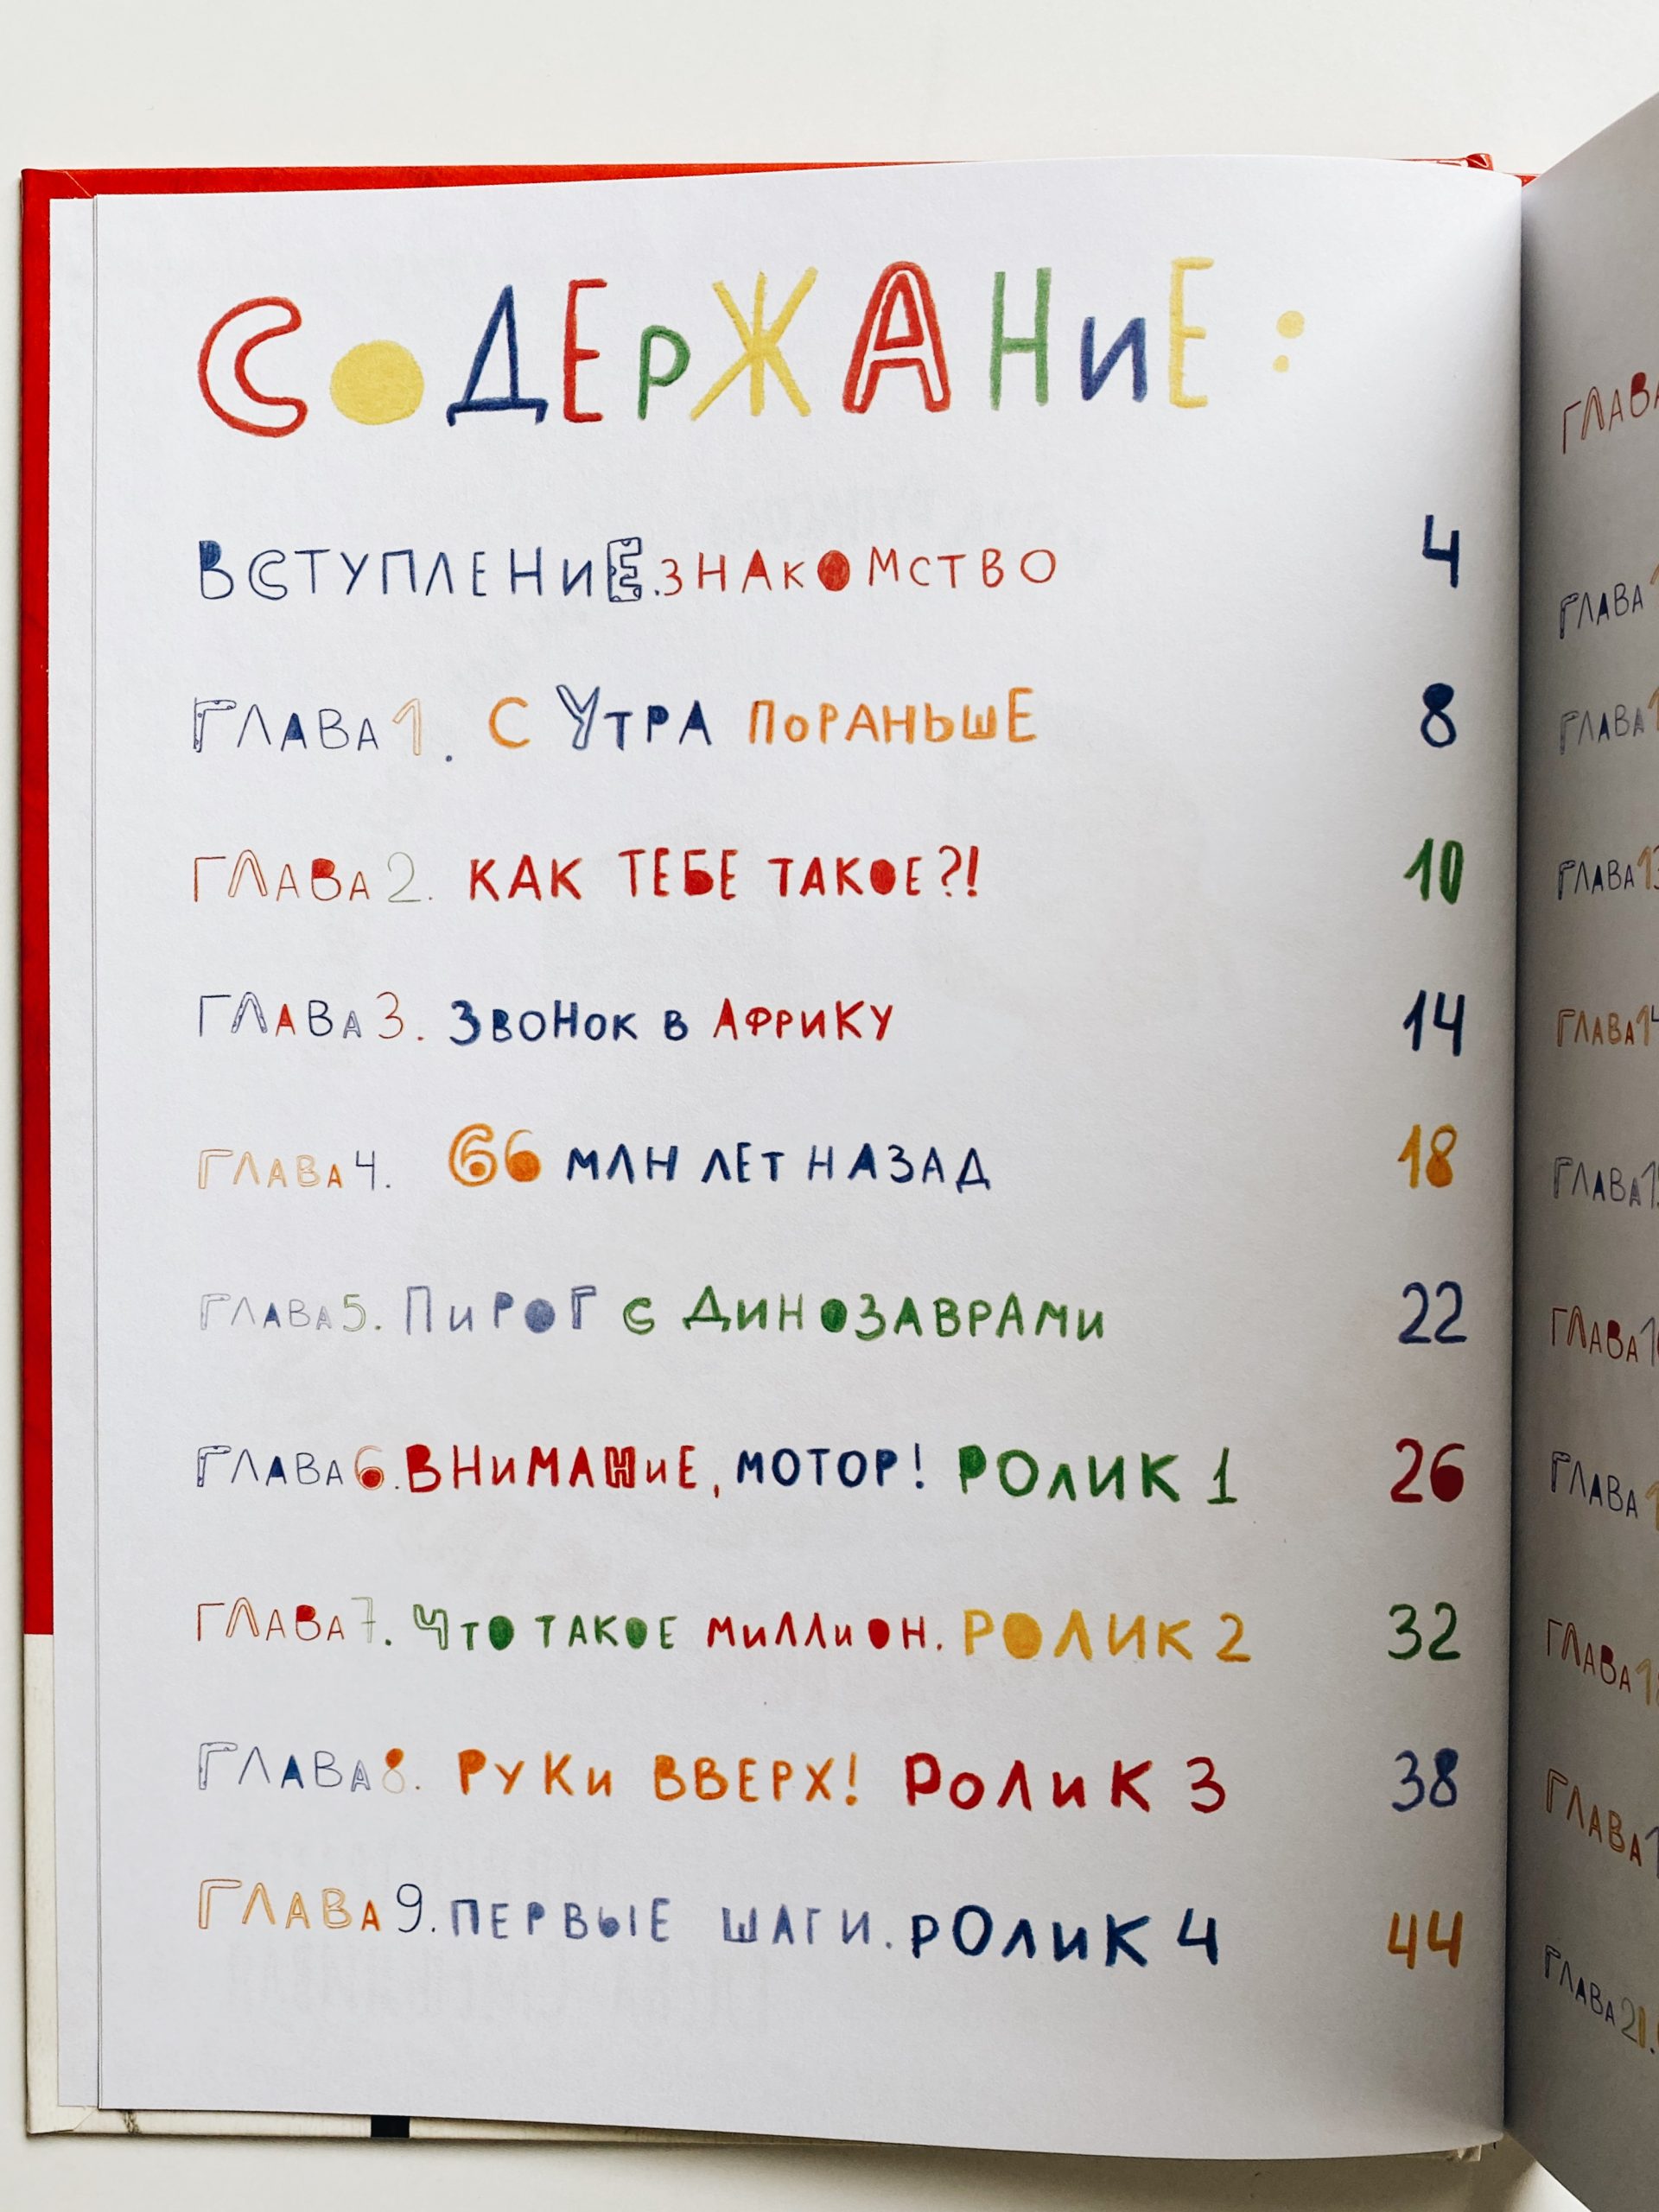 СОДЕРЖАНИЕ:
ВСТУПЛЕНИЕ. ЗНАКОМСТВО 4
ГЛАВА 1. С УТРА ПОРАНЬШЕ 8
ГЛАВА 2. КАК ТЕБЕ ТАКОЕ?! 10
ГЛАВА 3. ЗВОНОК В АФРИКУ 14
ГЛАВА 4. 66 МЛН ЛЕТ НАЗАД 18
ГЛАВА 5. ПИРОГ С ДИНОЗАВРАМИ 22
ГЛАВА 6. ВНИМАНИЕ, МОТОР! РОЛИК 1 26
ГЛАВА 7. ЧТО ТАКОЕ МИЛЛИОН. РОЛИК 2 32
ГЛАВА 8. РУКИ ВВЕРХ! РОЛИК 3 38
ГЛАВА 9. ПЕРВЫЕ ШАГИ. РОЛИК 4 44
ГЛАВА
ГЛАВА
ГЛАВА
ГЛАВА 13
ГЛАВА 14
ГЛАВА
ГЛАВА
ГЛАВА
ГЛАВА
ГЛАВА
ГЛАВА 21.